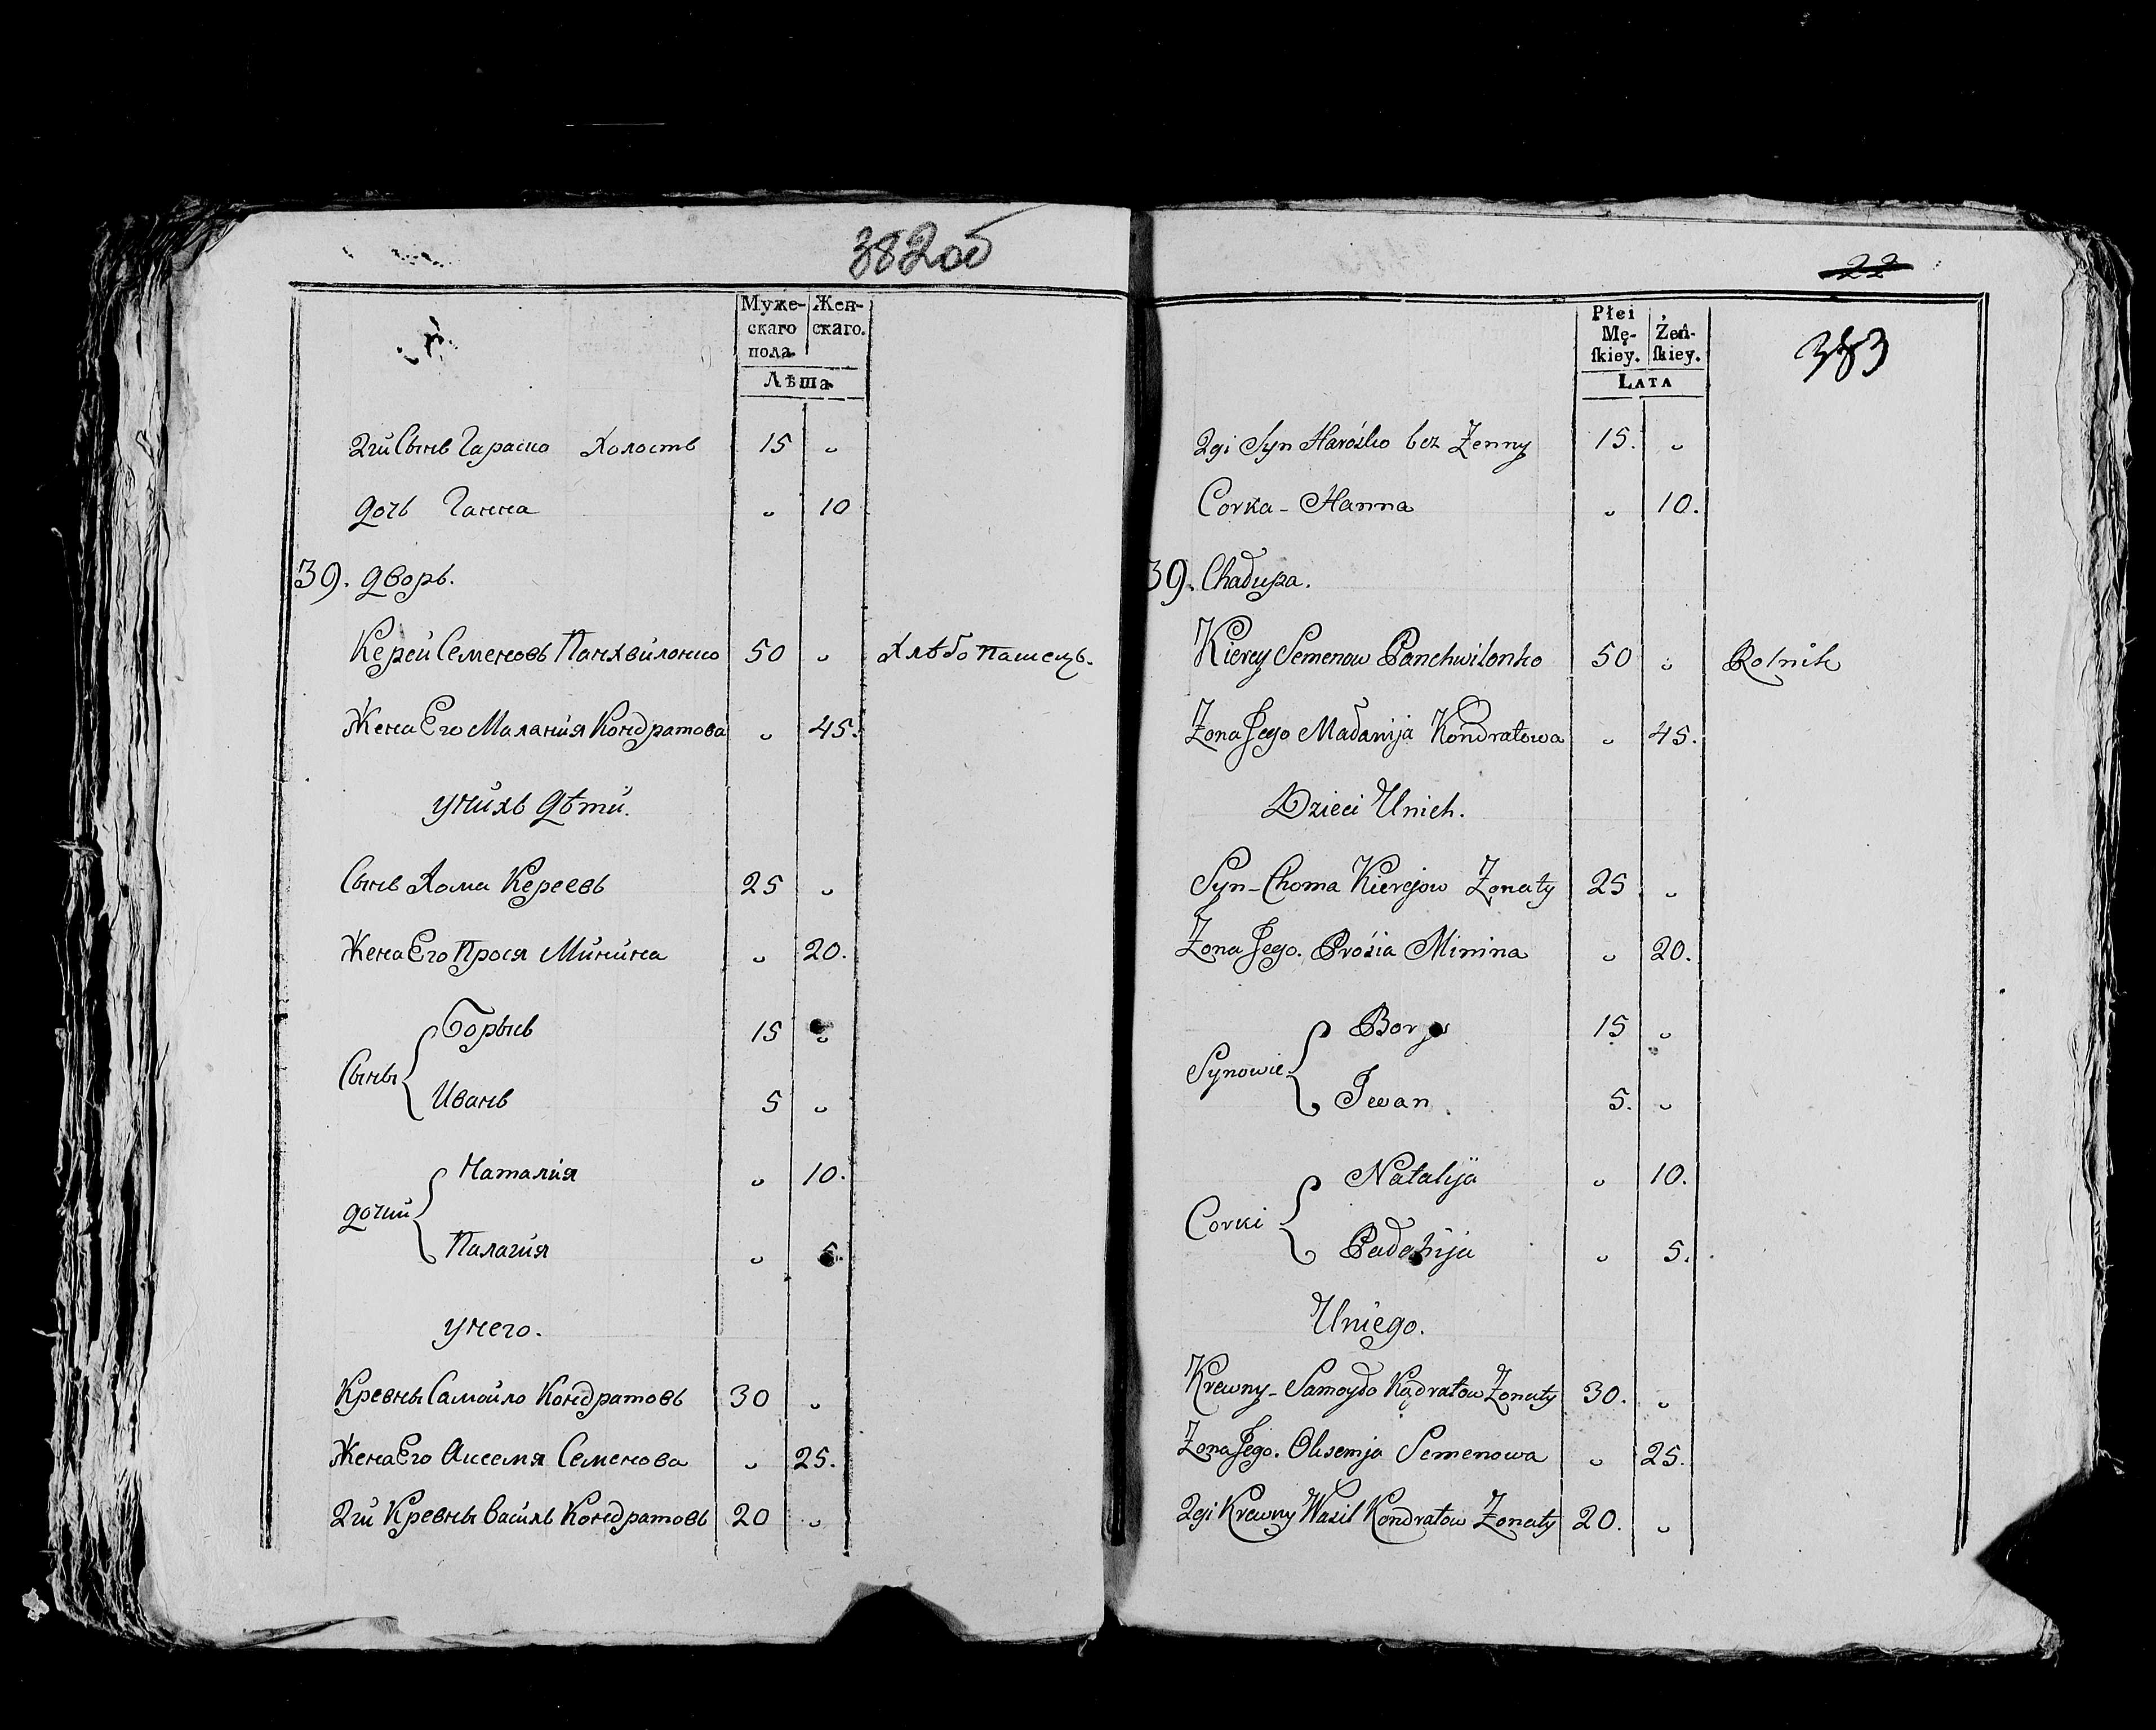 382об
Муже- Жен-
скаго скаго.
пола
Лѣта
2гй Сынъ Гараско Холостъ 15 „
дочь Ганна „ 10
39. дворъ.
Керей Семеновъ Панхвиленко 50 „ Хлѣбопашецъ.
Жена Его Малания Кондратова „ 45.
унихъ дѣти.
Сынъ Хома Кереевъ 25 „
Жена Его Прося Минина „ 20.
Сыны
Борысъ 15 „
Иванъ 5 „
дочии
Наталия „ 10.
Палагия „ 5.
унего.
Кревны Самойло Кондратовъ 30 „
Жена Его Аксемя Семенова „ 25.
2гй Кревны Василь Кондратовъ 20 „
22
383
Płei
Mę- Żeń-
ſkiey. ſkiey.
LATA
2gi Syn Haraśko bez Zenny 15. „
Corka - Hanna „ 10.
39. Chałupa.
Kierey Semenow Panchwilonko 50 „ Rolnik
Zona Jego Małanija Kondratowa „ 45.
Dzieci Unich.
Syn - Choma Kierejow Zonaty 25 „
Zona Jego. Prósia Minina „ 20.
Synowie
Borys 15 „
Jwan 5. „
Corki
Natalija „ 10.
Pałahija „ 5.
Uniego.
Krewny - Samoyło Kądratow Zonaty 30. „
Zona Jego. Oksemja Semenowa „ 25.
2gi Krewny Wasil Kondratow Zonaty 20. „